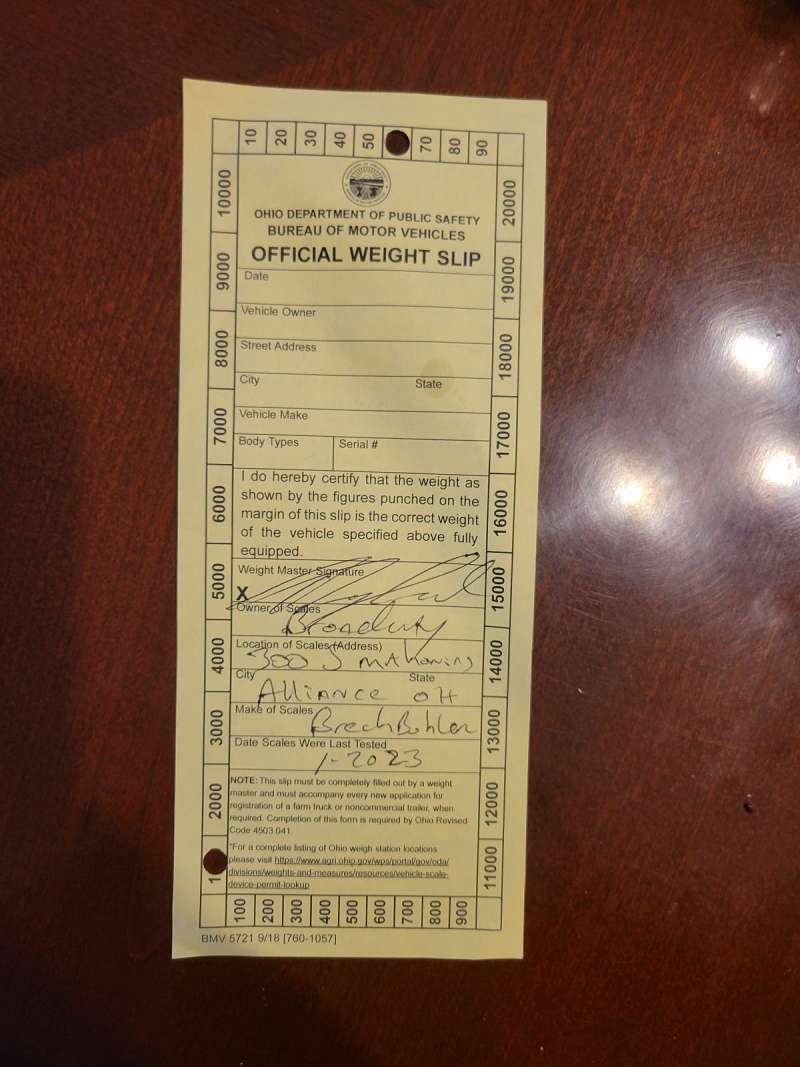 10 20 30 40 50 70 80 90
10000
9000
8000
7000
6000
5000
4000
3000
2000
1
20000
19000
18000
17000
16000
15000
14000
13000
12000
11000
OHIO DEPARTMENT OF PUBLIC SAFETY
BUREAU OF MOTOR VEHICLES
OFFICIAL WEIGHT SLIP
Date
Vehicle Owner
Street Address
City State
Vehicle Make
Body Types Serial #
I do hereby certify that the weight as
shown by the figures punched on the
margin of this slip is the correct weight
of the vehicle specified above fully
equipped.
Weight Master Signature
X
Owner of Scales
Broadway
Location of Scales (Address)
300 S MAhoning
City State
Alliance OH
Make of Scales
BrechBuhler
Date Scales Were Last Tested
1-2023
NOTE: This slip must be completely filled out by a weight
master and must accompany every new application for
registration of a farm truck or noncommercial trailer, when
required. Completion of this form is required by Ohio Revised
Code 4503.041.
*For a complete listing of Ohio weigh station locations
please visit https://www.agri.ohio.gov/wps/portal/gov/oda/
divisions/weights-and-measures/resources/vehicle-scale-
device-permit-lookup
100 200 300 400 500 600 700 800 900
BMV 5721 9/18 [760-1057]